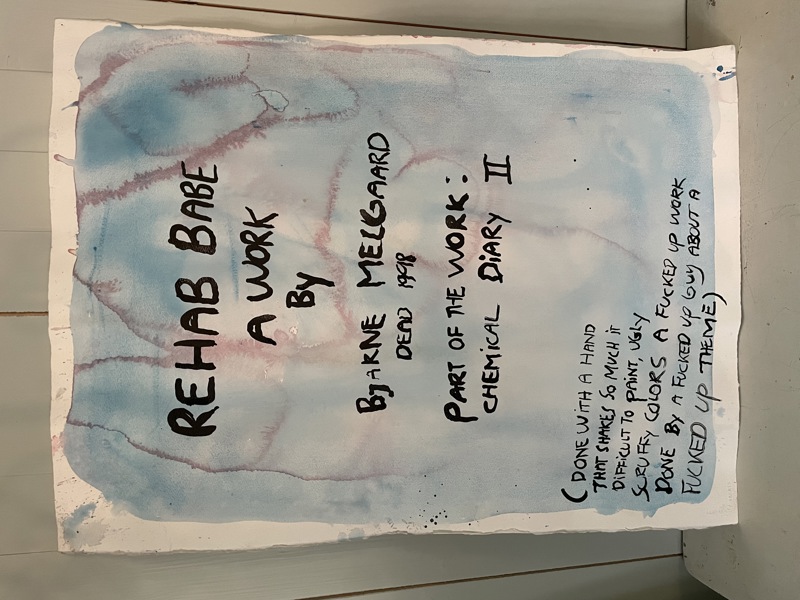 REHAB BABE
A WORK
By
BJARNE MELGAARD
DEAD 1998
PART OF THE WORK:
CHEMiCAL DiARY II
(DONE WiTH A HAND
THAT SHAKES SO MUCH iT
DiFFiCULT TO PAiNT, UGLY
SCRUFFY COLORS A FUCKED UP WORK
DONE By A FUCKED UP GUY ABOUT A
FUCKED UP THEME)